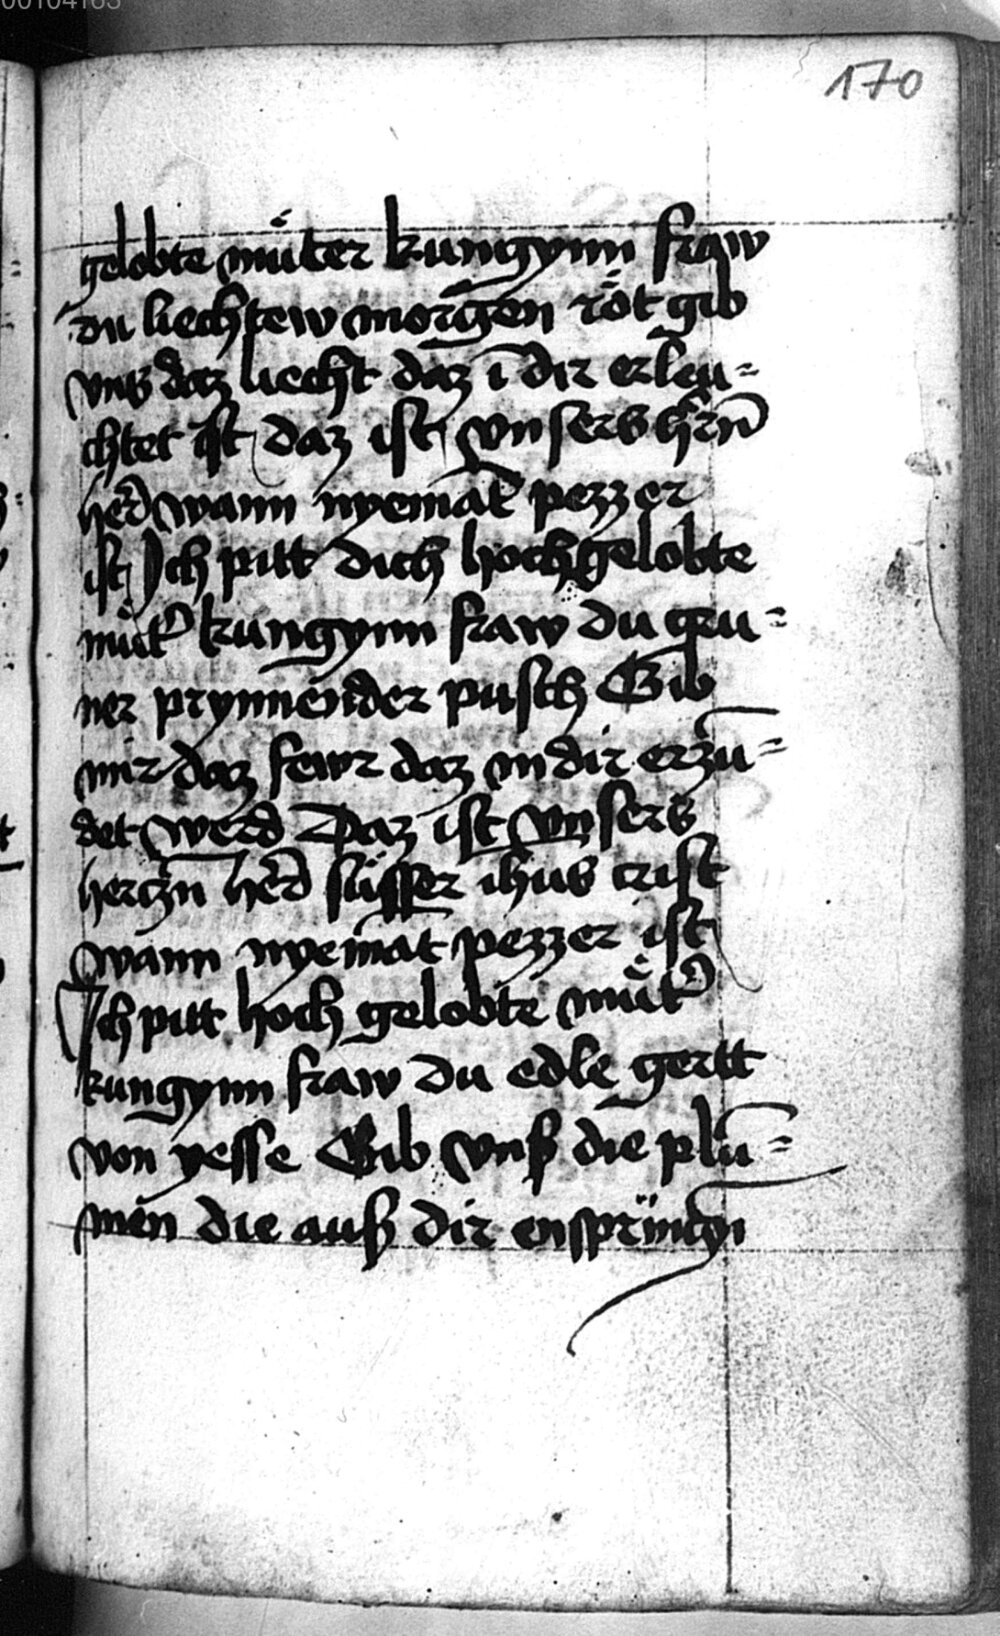 00104163
170
gelobte můter kungynn fraw
du liechtew morgen röt gib
vns daz liecht daz ī dir erleu-
chtet ist daz ist vnsers hrn̄
wann nyemāt pezzer
ist Ich pitt dich hochgelobte
můt kungynn fraw du gru-
ner prynnender pusch Gib
mir daz fewr daz in dir erzu-
det werd Daz ist vnsers
herczn süsser ihus crist
wann nyemāt pezzer ist
Ich pitt hoch gelobte můt
kungynn fraw du edle gertt
von yesse Gib vnß die plu-
men die auß dir